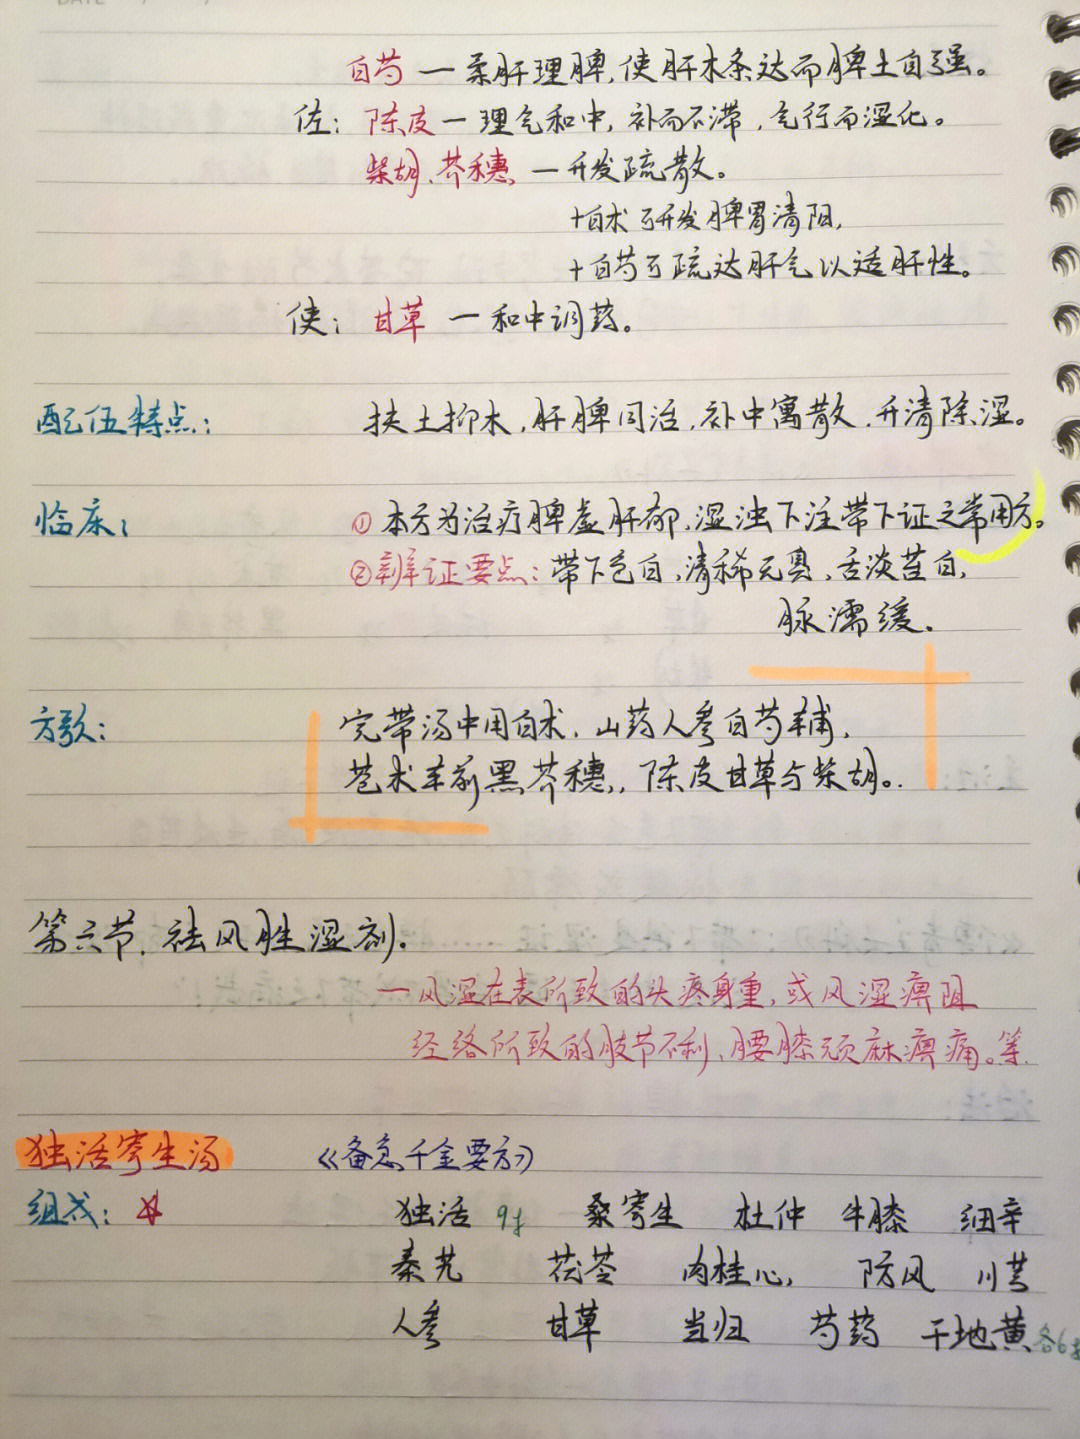 白芍一柔肝理脾,使肝木条达而脾土自强。
佐:陈皮一理气和中,补而不滞,气行而湿化。
柴胡、芥穗一升发疏散。
+白术可升发脾胃清阳,
+白芍可疏达肝气以适肝性。
使:甘草一和中调药。
配伍特点:扶土抑木,肝脾同治,补中寓散,升清除湿。
临床:①本方为治疗脾虚肝郁,湿浊下注带下证之常用方。
②辨证要点:带下色白,清稀无臭,舌淡苔白,
脉濡缓.
方歌:完带汤中用白术,山药人参白芍辅,
苍术车前黑芥穗,陈皮甘草与柴胡。
第六节.祛风胜湿剂.
一风湿在表所致的头疼身重,或风湿痹阻
经络所致的肢节不利,腰膝顽麻痹痛。等.
独活寄生汤 《备急千金要方》
组成: 独活 9g 桑寄生 杜仲 牛膝 细辛
秦艽 茯苓 肉桂心, 防风 川芎
人参 甘草 当归 芍药 干地黄各6g